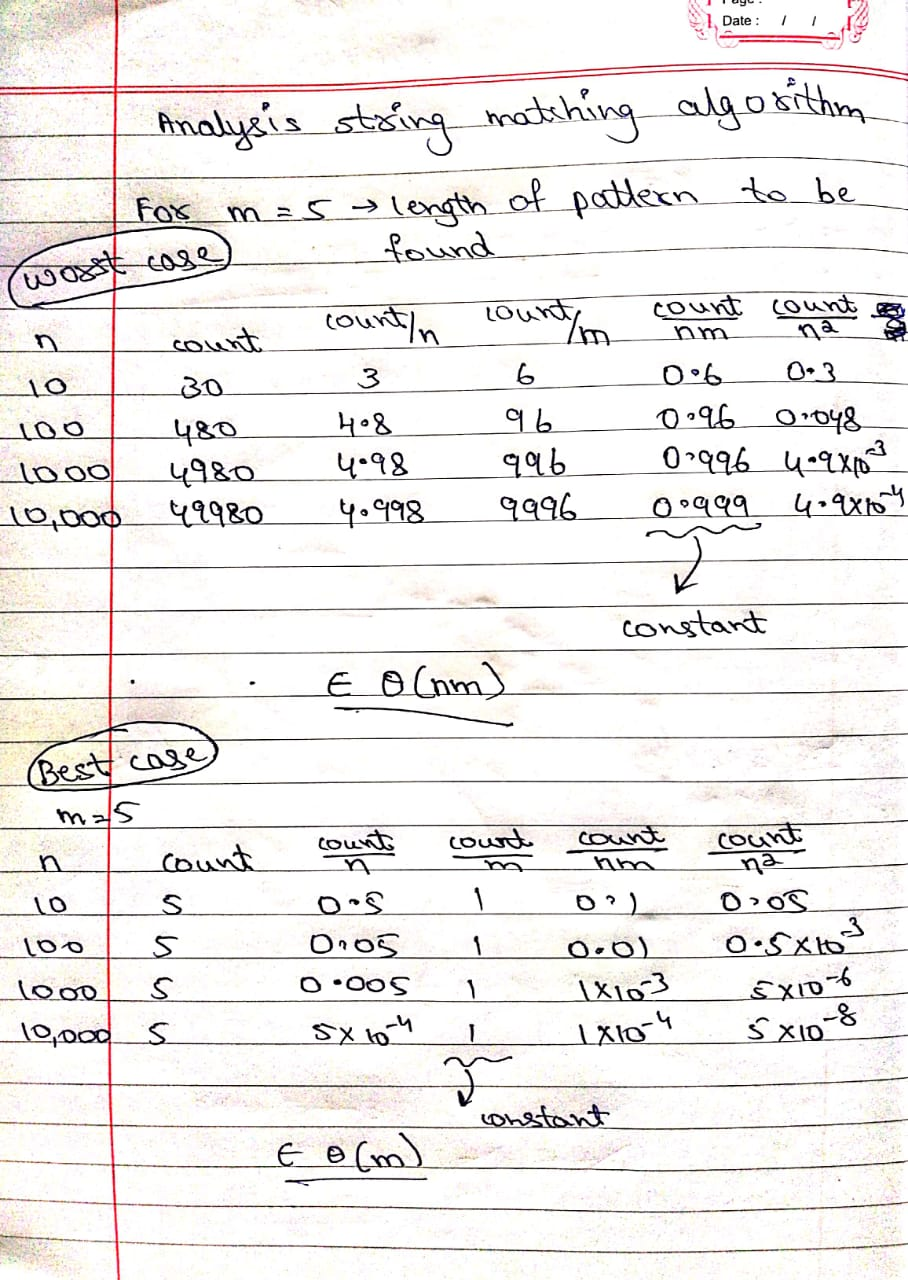 Page :
Date : / /
Analysis string matching algorithm
For m = 5 → length of pattern to be
found
Worst case
n count count/n count/m count/nm count/n²
10 30 3 6 0.6 0.3
100 480 4.8 96 0.96 0.048
1000 4980 4.98 996 0.996 4.9×10⁻³
10,000 49980 4.998 9996 0.999 4.9×10⁻⁴
constant
∈ θ(nm)
Best case
m=5
n count count/n count/m count/nm count/n²
10 5 0.5 1 0.1 0.05
100 5 0.05 1 0.01 0.5×10⁻³
1000 5 0.005 1 1×10⁻³ 5×10⁻⁶
10,000 5 5×10⁻⁴ 1 1×10⁻⁴ 5×10⁻⁸
constant
∈ θ(m)